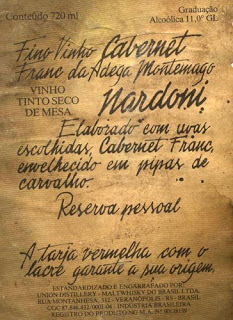 Conteúdo 720 ml
Graduação
Alcoólica 11,0º GL
Fino Vinho Cabernet
Franc da Adega Montemago
VINHO
TINTO SECO
DE MESA
Nardoni
Elaborado com uvas
escolhidas, Cabernet Franc,
envelhecido em pipas de
carvalho.
Reserva pessoal
A tarja vermelha com o
lacre garante a sua origem.
ESTANDARDIZADO E ENGARRAFADO POR:
UNION DISTILLERY - MALTWHISKY DO BRASIL LTDA.
RUA MONTENHESA, 312 - VERANÓPOLIS - RS - BRASIL
INDÚSTRIA BRASILEIRA
REGISTRO DO PRODUTO NO M.A. Nº